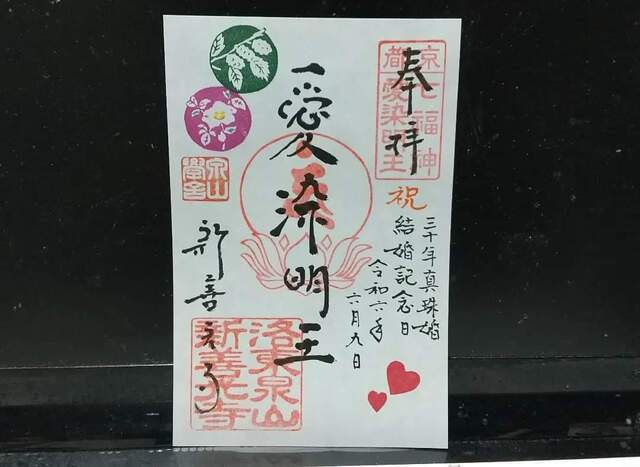 奉拝
京都七福神
愛染明王
祝
三十年真珠婚
結婚記念日
令和六年
六月九日
愛染明王
新善光寺
洛東泉山
新善光寺